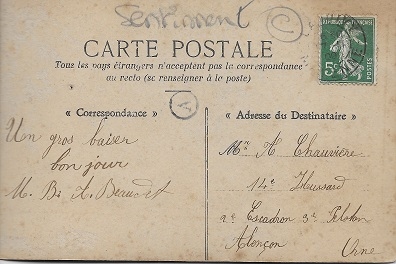 Sentiment
C
CARTE POSTALE
Tous les pays étrangers n'acceptent pas la correspondance
au recto (se renseigner à la poste)
A
« Correspondance »
Un gros baiser
bonjour
« Adresse du Destinataire »
Mr A Chauvière
14e Hussard
2e Escadron 3e Peloton
Alençon Orne
5c